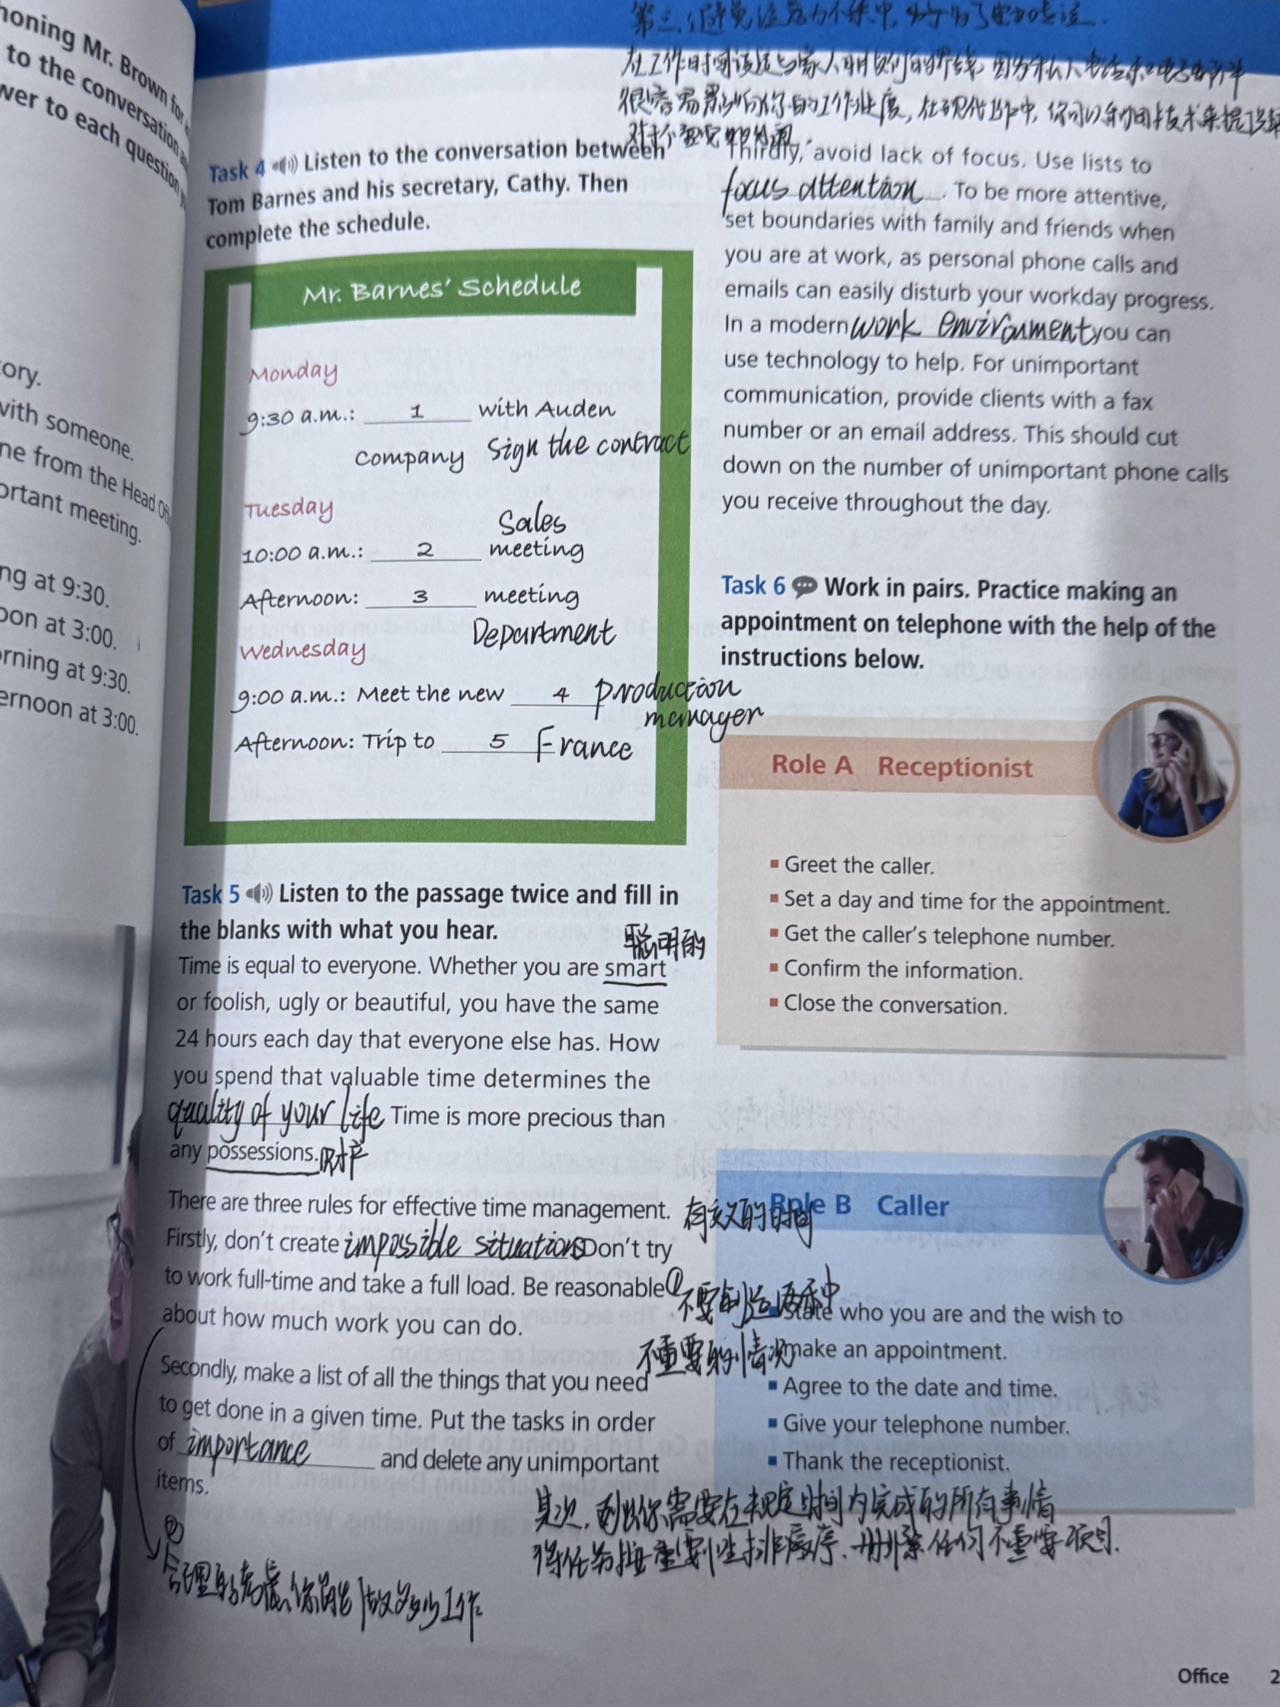 honing Mr. Brown for
to the conversation
wer to each question
ory.
with someone.
ne from the Head Off
ortant meeting.
ng at 9:30.
oon at 3:00.
rning at 9:30.
ernoon at 3:00.
Task 4 Listen to the conversation between
Tom Barnes and his secretary, Cathy. Then
complete the schedule.
Mr. Barnes' Schedule
Monday
9:30 a.m.: 1 with Auden
company sign the contract
Tuesday
Sales
10:00 a.m.: 2 meeting
Afternoon: 3 meeting
Department
Wednesday
9:00 a.m.: Meet the new 4 production
manager
Afternoon: Trip to 5 France
Task 5 Listen to the passage twice and fill in
the blanks with what you hear.
聪明的
Time is equal to everyone. Whether you are smart
or foolish, ugly or beautiful, you have the same
24 hours each day that everyone else has. How
you spend that valuable time determines the
quality of your life Time is more precious than
any possessions. 财产
There are three rules for effective time management.
有效的时间
Firstly, don't create impossible situations Don't try
to work full-time and take a full load. Be reasonable
about how much work you can do.
①不要制造
不重要的情况
Secondly, make a list of all the things that you need
to get done in a given time. Put the tasks in order
of importance and delete any unimportant
items.
其次，列出你需要在规定时间内完成的所有事情
将任务按重要性排序，删除任何不重要项目.
②
合理的考虑你能做多少工作
在工作时间设定与家人朋友间的界线，因为私人电话和电子邮件
很容易影响你的工作进度，在现代工作中，你可以利用技术来提供
Thirdly, avoid lack of focus. Use lists to
focus attention. To be more attentive,
set boundaries with family and friends when
you are at work, as personal phone calls and
emails can easily disturb your workday progress.
In a modern work environment you can
use technology to help. For unimportant
communication, provide clients with a fax
number or an email address. This should cut
down on the number of unimportant phone calls
you receive throughout the day.
Task 6 Work in pairs. Practice making an
appointment on telephone with the help of the
instructions below.
Role A Receptionist
Greet the caller.
Set a day and time for the appointment.
Get the caller's telephone number.
Confirm the information.
Close the conversation.
Role B Caller
State who you are and the wish to
make an appointment.
Agree to the date and time.
Give your telephone number.
Thank the receptionist.
Office 2